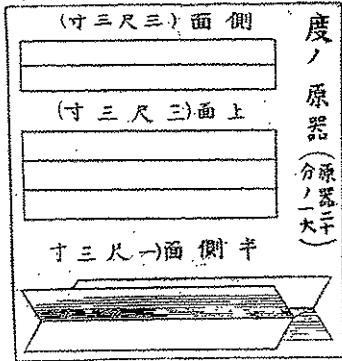 度ノ原器(原器二十分ノ一大)
側面(三尺三寸)
上面(三尺三寸)
半側面(一尺三寸